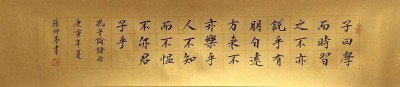 子曰學
而時習
之不亦
說乎有
朋自遠
方來不
亦樂乎
人不知
而不慍
不亦君
子乎
孔子論語句
庚寅年夏